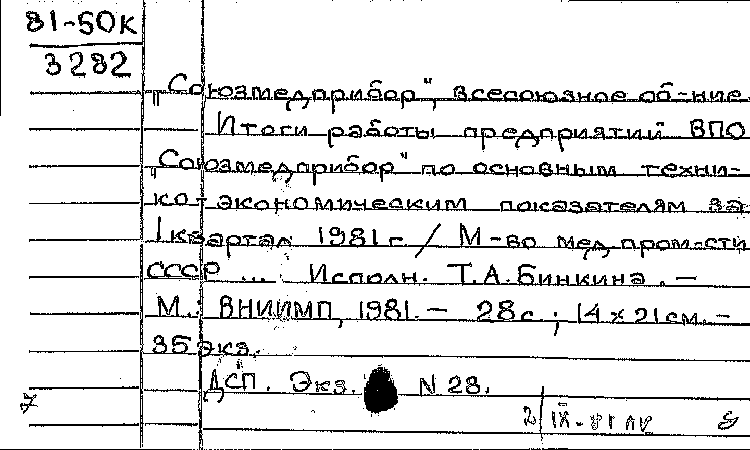 81-50к
3282
„Союзмедприбор", всесоюзное об-ние
Итоги работы предприятий ВПО
„Союзмедприбор" по основным техни-
ко-экономическим показателям за
I квартал 1981 г. / М-во мед. пром-сти
СССР ... Исполн. Т.А. Бинкина. —
М.: ВНИИМП, 1981. — 28 с.; 14 х 21 см. —
85 экз.
ДСП. Экз. N 28.
2 IX-81